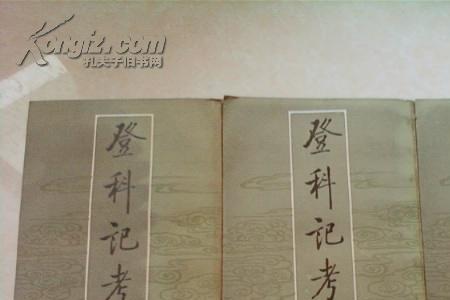 Kongfz.com
孔夫子旧书网
登科记考
登科记考